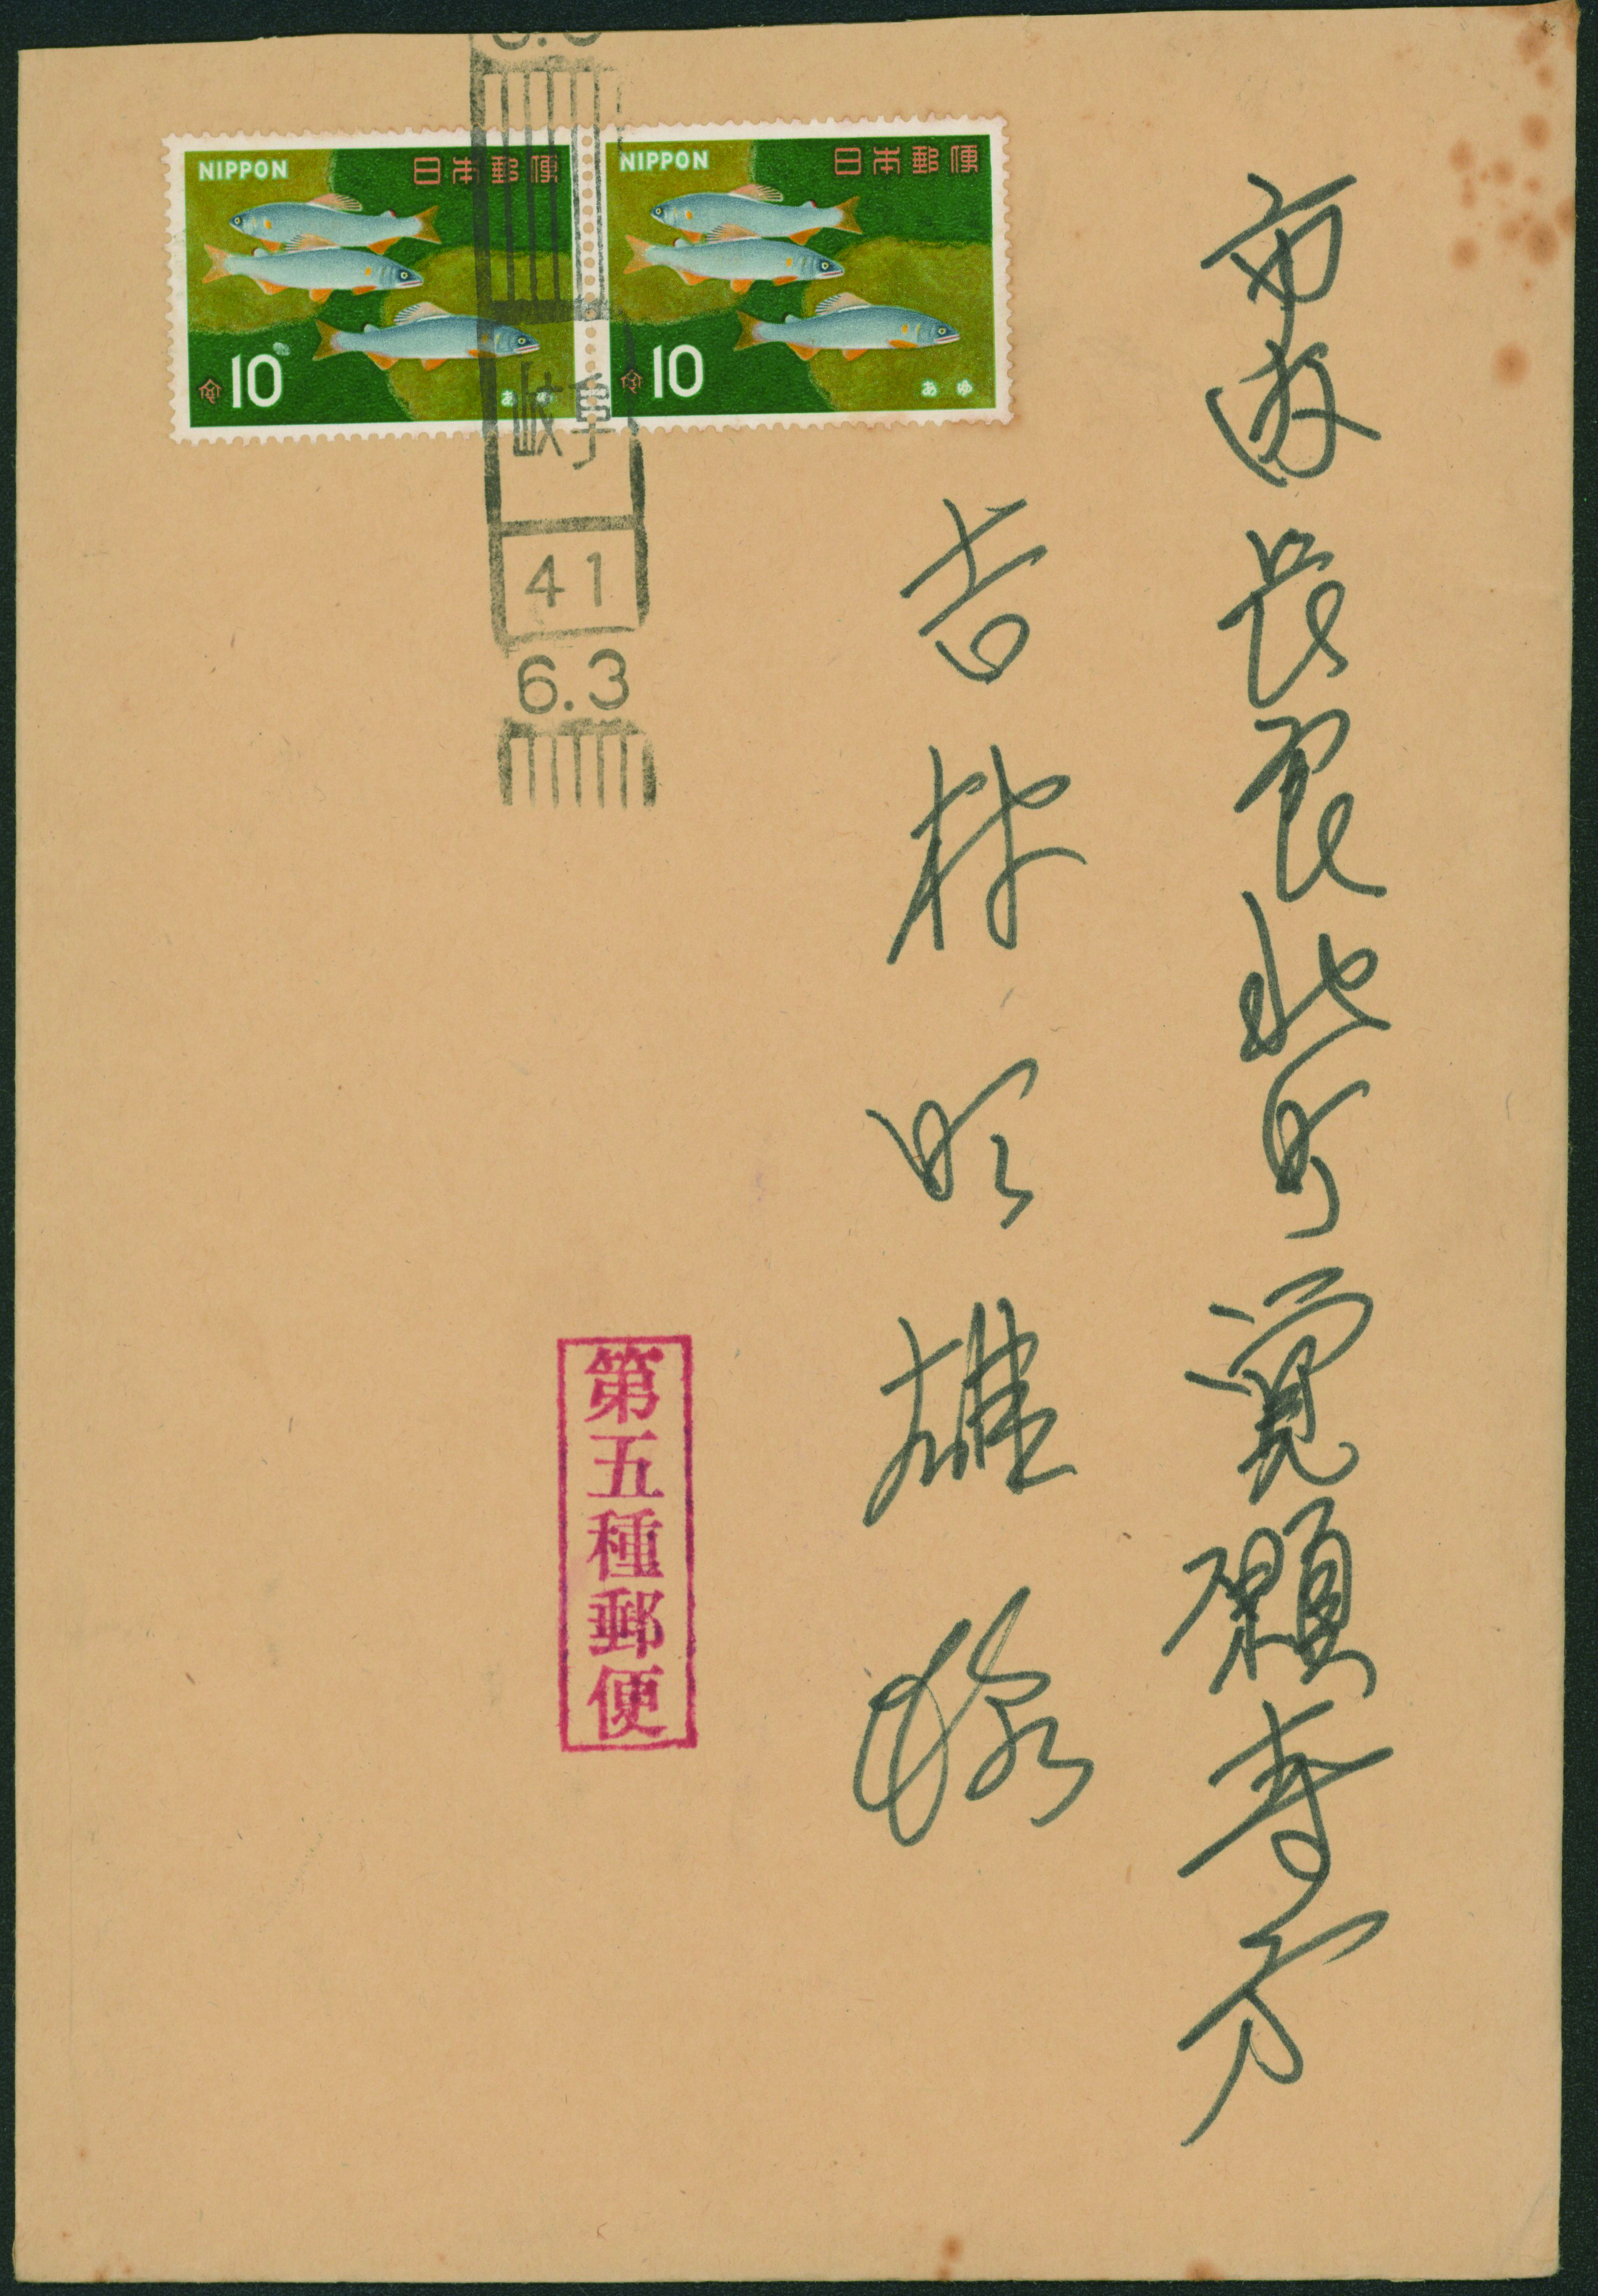 NIPPON 日本郵便
10
あゆ
NIPPON 日本郵便
10
あゆ
岐阜
41
6.3
市 長良北町 覺願寺方
吉村 雄 様
第五種郵便